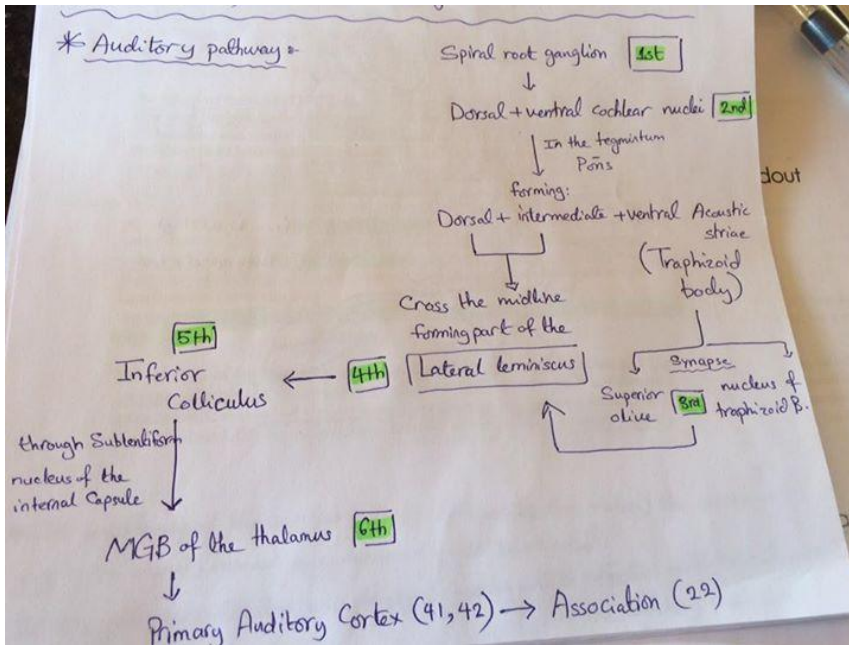 * Auditory pathway:-
Spiral root ganglion 1st
Dorsal + ventral cochlear nuclei 2nd
In the tegmintum
Pons
forming:
Dorsal + intermediate + ventral Acoustic
striae
(Traphizoid
body)
Cross the midline
forming part of the
Lateral leminiscus
4th
Synapse
Superior
olive
3rd
nucleus of
traphizoid B.
5th
Inferior
Colliculus
through Sublentiform
nucleus of the
internal Capsule
MGB of the thalamus 6th
Primary Auditory Cortex (41,42) → Association (22)
dout